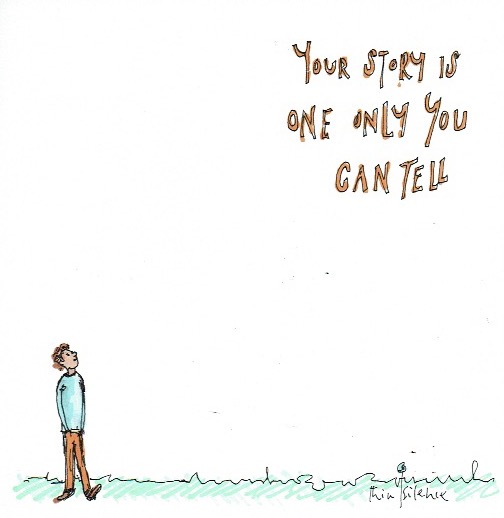 YOUR STORY IS
ONE ONLY YOU
CAN TELL
thin silence